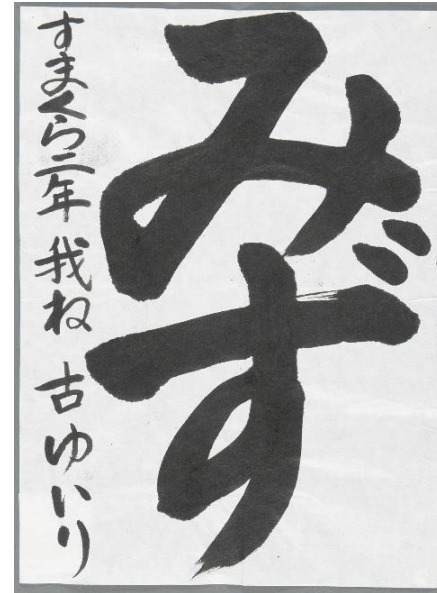 みず
すまくら二年 我ね 古ゆいり